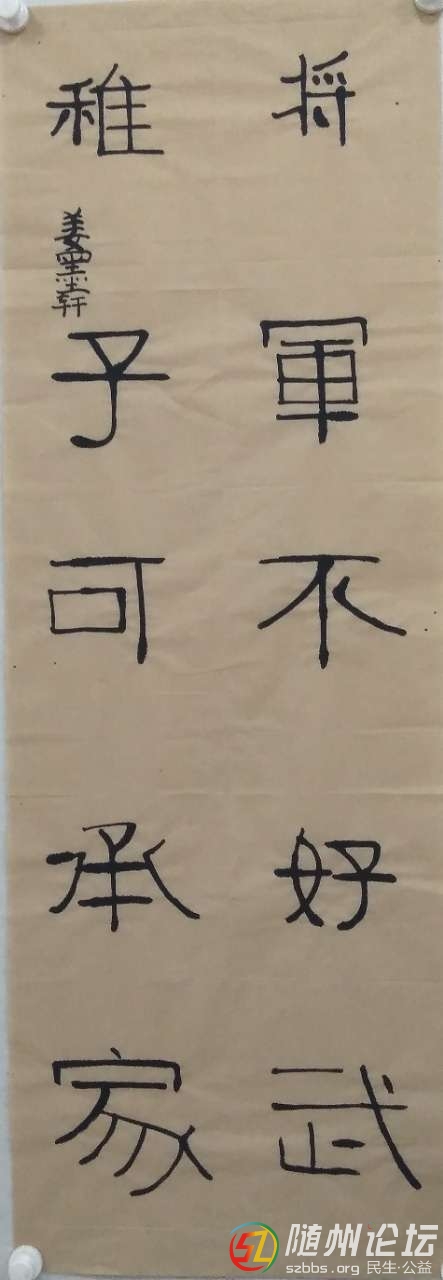 将軍不好武
稚子可承家
姜墨轩
随州论坛
szbbs.org 民生·公益